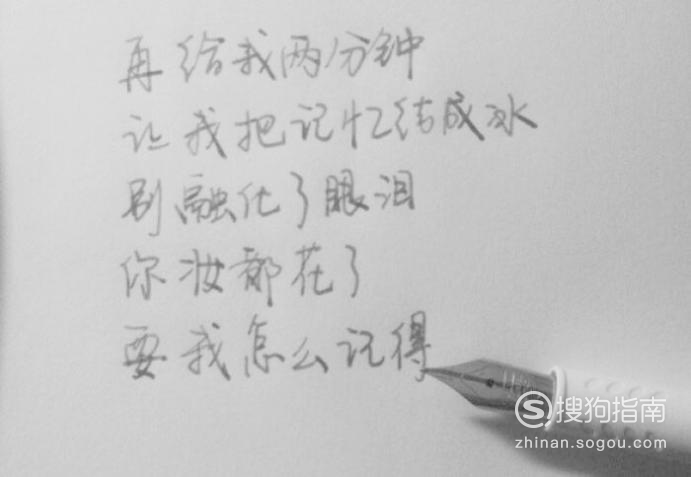 再给我两分钟
让我把记忆结成冰
别融化了眼泪
你妆都花了
要我怎么记得
搜狗指南
zhinan.sogou.com